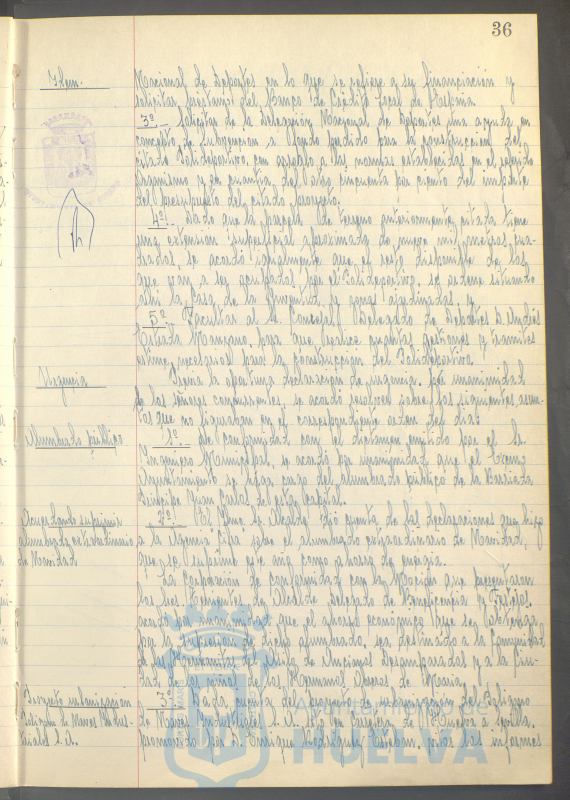 36
Idem.
Nacional de Deportes en lo que se refiere a su financiación y
solicitar préstamo del Banco de Crédito Local de España.
3º Solicitar de la Delegación Nacional de Deportes una ayuda en
concepto de subvención a fondo perdido para la construcción del
citado Polideportivo, con arreglo a las normas establecidas en el referido
Organismo y en cuantía del cincuenta por ciento del importe
del presupuesto del citado proyecto.
4º Dado que la parcela de terreno anteriormente citada tiene
una extensión superficial aproximada de nueve mil metros cua-
drados, se acordó igualmente que el resto disponible de los
que van a ser ocupados por el Polideportivo, se ordene situando
allí la Casa de la Juventud y zonas ajardinadas, y
5º Facultar al Sr. Concejal Delegado de Deportes D. Andrés
Estrada Manzano, para que realice cuantas gestiones y trámites
estime necesarios para la construcción del Polideportivo.
Urgencia
Previa la oportuna declaración de urgencia, por unanimidad
de los señores concurrentes, se acordó resolver sobre los siguientes asun-
tos que no figuraban en el correspondiente orden del día:
Alumbrado público
1º De conformidad con el dictamen emitido por el Sr.
Ingeniero Municipal, se acordó por unanimidad que el Excmo.
Ayuntamiento se haga cargo del alumbrado público de la Barriada
Príncipe Juan Carlos, de esta Capital.
Acuerdo suprimir
alumbrado extraordinario
de Navidad
2º El Iltmo. Sr. Alcalde dio cuenta de las declaraciones que hizo
a la Agencia Cifra sobre el alumbrado extraordinario de Navidad,
que se suprime este año como ahorro de energía.
La Corporación de conformidad con la Moción que presentaron
los Sres. Tenientes de Alcalde Delegado de Beneficencia y Festejos,
acordó por unanimidad que el ahorro económico que se obtenga
por la supresión de dicho alumbrado, sea destinado a la Comunidad
de las Hermanitas del Asilo de Ancianos Desamparados y a la Ciu-
dad de los niños de las Hermanas Obreras de María.
Proyecto urbanización
Polígono de Naves Indus-
triales S.A.
3º Dada cuenta del proyecto de urbanización del Polígono
de Naves Industriales S.A. en Carretera de Huelva a Sevilla,
promovido por D. Enrique Rodríguez Esteban, vistos los informes
HUELVA